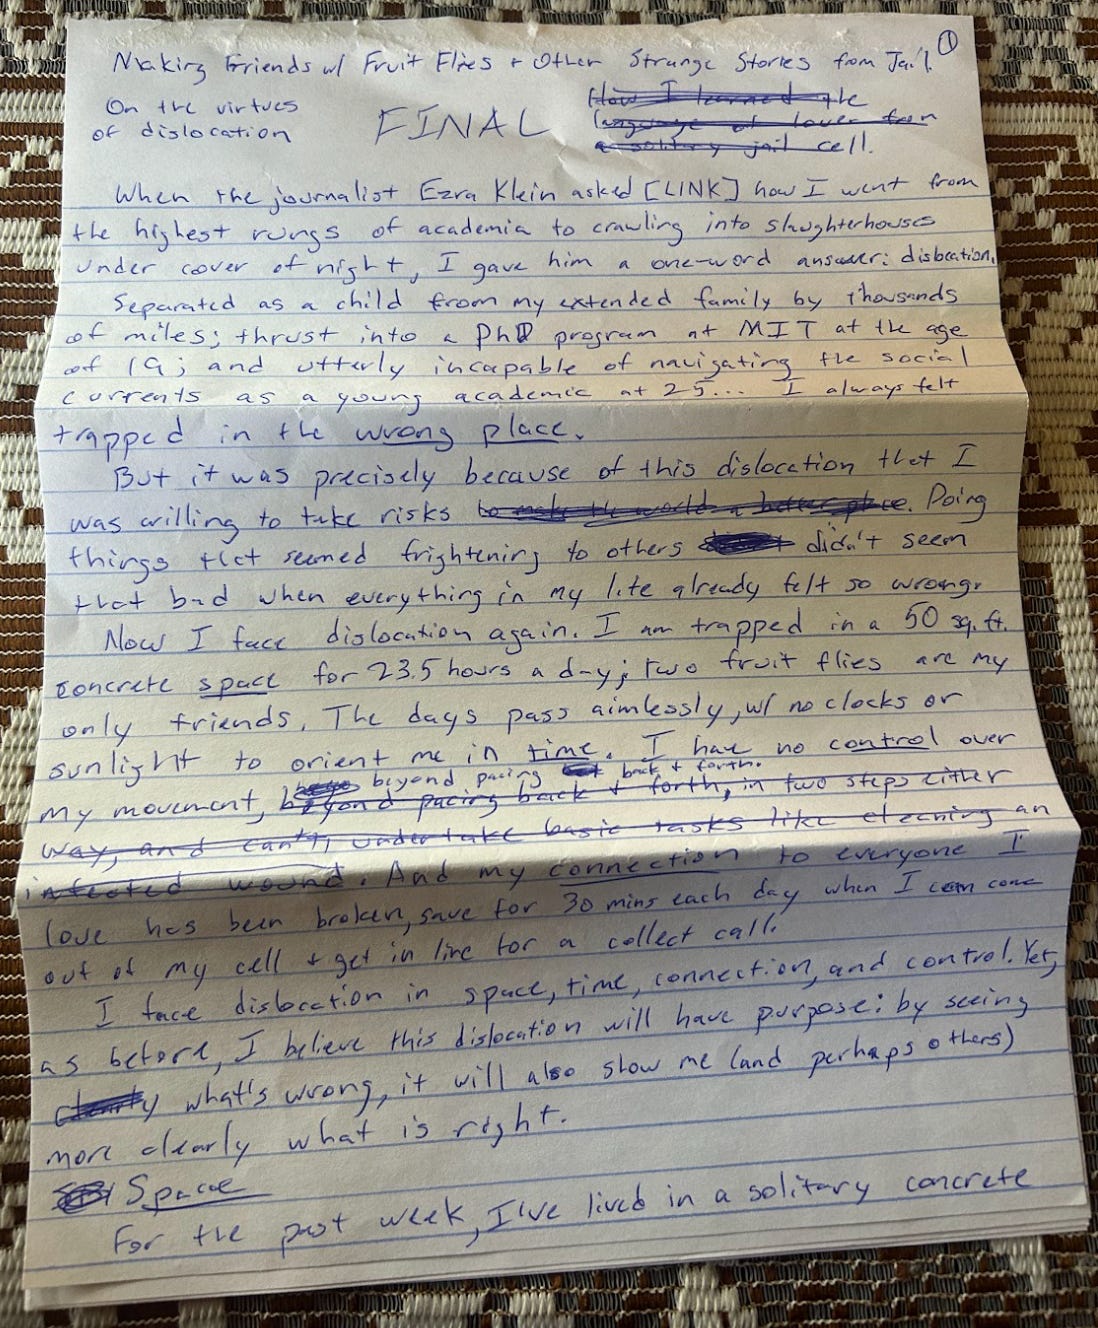 Making Friends w/ Fruit Flies + Other Strange Stories from Jail. ①
On the virtues
of dislocation
FINAL
How I learned the
language of lover from
a solitary jail cell.
When the journalist Ezra Klein asked [LINK] how I went from
the highest rungs of academia to crawling into slaughterhouses
under cover of night, I gave him a one-word answer: dislocation.
Separated as a child from my extended family by thousands
of miles; thrust into a PhD program at MIT at the age
of 19; and utterly incapable of navigating the social
currents as a young academic at 25... I always felt
trapped in the wrong place.
But it was precisely because of this dislocation that I
was willing to take risks to make the world a better place. Doing
things that seemed frightening to others didn't seem
that bad when everything in my life already felt so wrong.
Now I face dislocation again. I am trapped in a 50 sq. ft.
concrete space for 23.5 hours a day; two fruit flies are my
only friends. The days pass aimlessly, w/ no clocks or
sunlight to orient me in time. I have no control over
beyond pacing back + forth.
my movement, beyond pacing back + forth, in two steps either
way, and can't undertake basic tasks like cleaning an
infected wound. And my connection to everyone I
love has been broken, save for 30 mins each day when I can come
out of my cell + get in line for a collect call.
I face dislocation in space, time, connection, and control. Yet,
as before, I believe this dislocation will have purpose: by seeing
clearly what's wrong, it will also show me (and perhaps others)
more clearly what is right.
Space
For the past week, I've lived in a solitary concrete